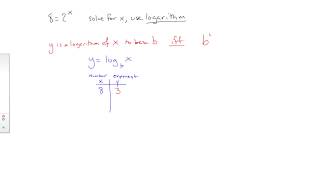 8 = 2ˣ solve for x, use logarithm
y is a logarithm of x to base b iff b
y = log_b x
number exponent
x y
8 3